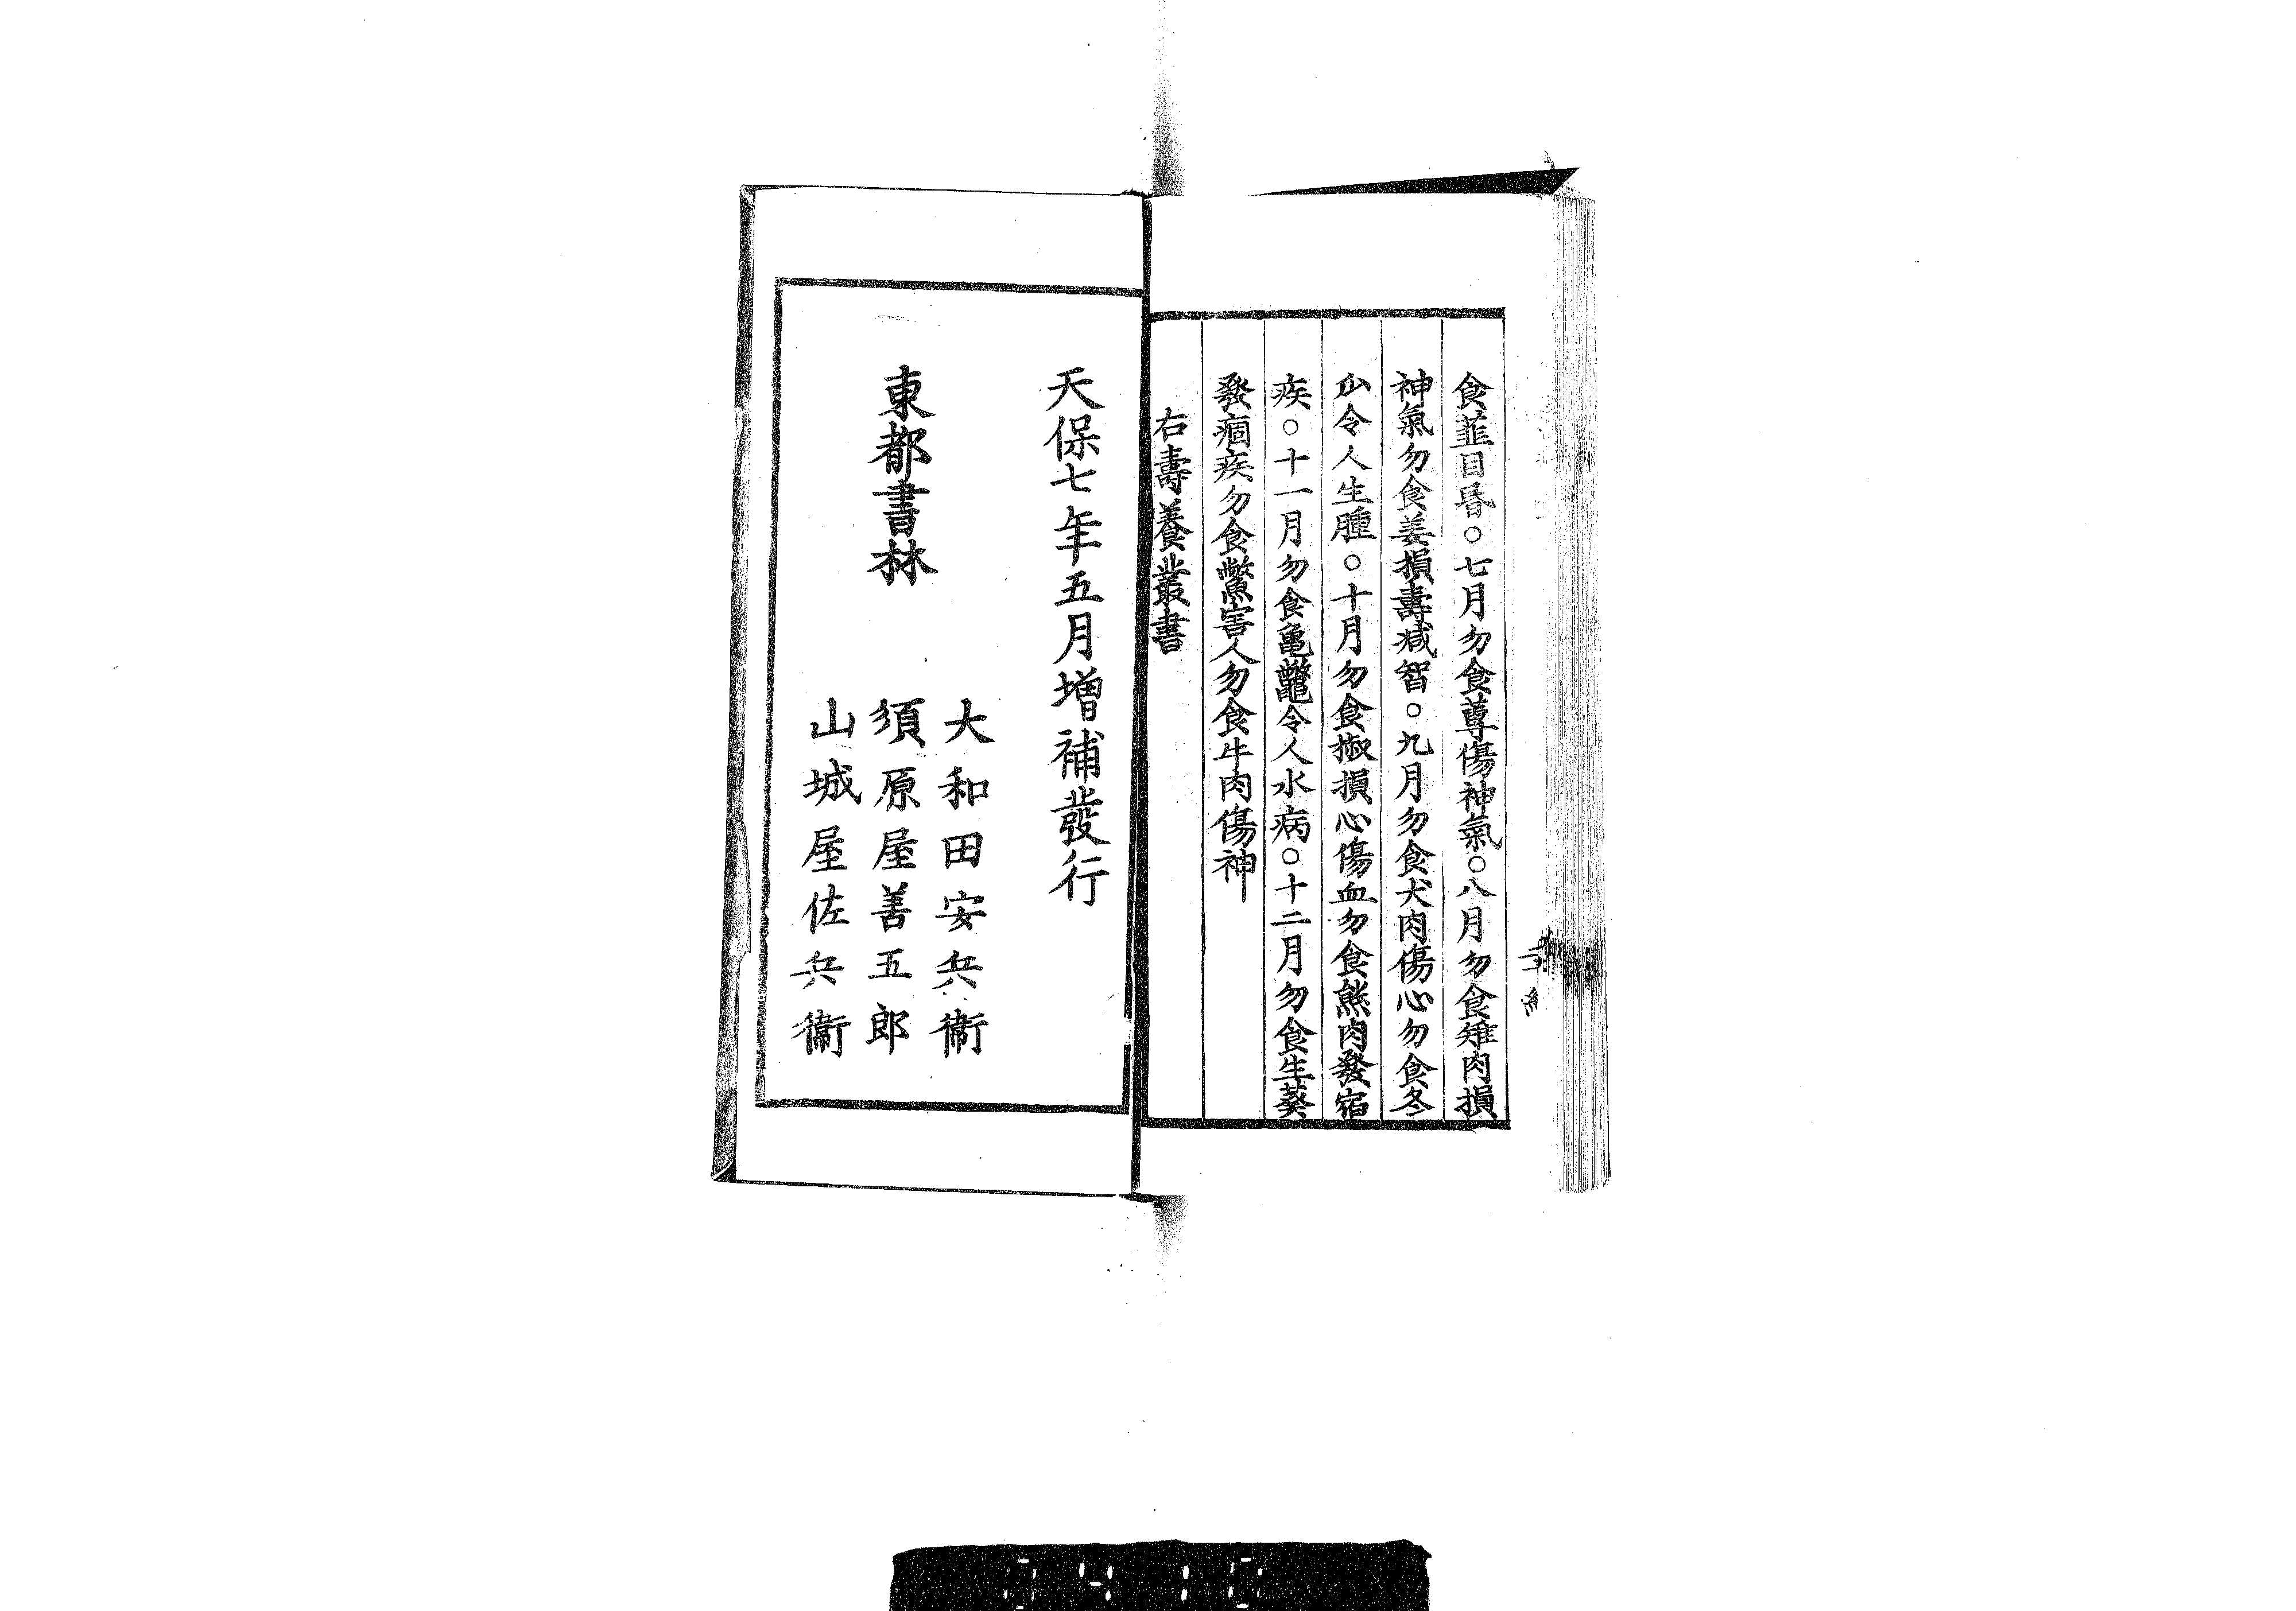 食韮目昏○七月勿食蓴傷神氣○八月勿食雉肉損
神氣勿食姜損壽减智○九月勿食犬肉傷心勿食冬
瓜令人生腫○十月勿食椒損心傷血勿食熊肉發宿
疾○十一月勿食亀鼈令人水病○十二月勿食生葵
發痼疾勿食鱉害人勿食牛肉傷神
右壽養叢書
天保七年五月增補發行
東都書林
大和田安兵衞
須原屋善五郎
山城屋佐兵衞